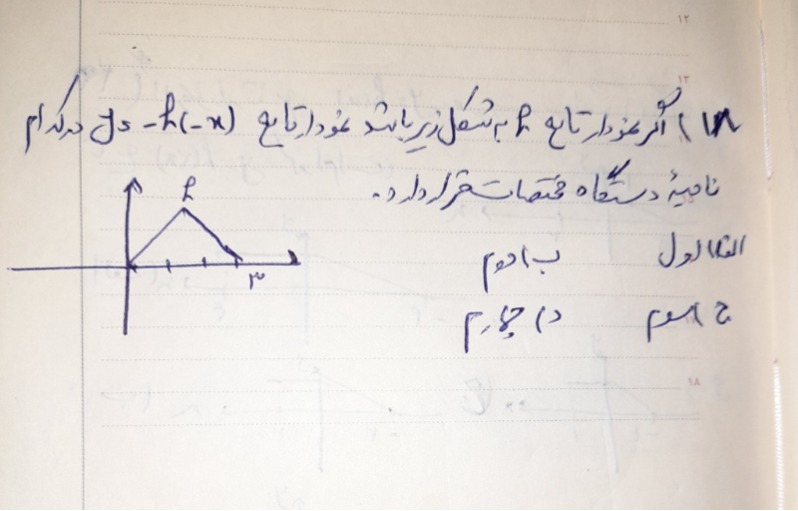 ۱۲
۱۳
۱۸) اگر نمودار تابع h به شکل زیر باشد نمودار تابع y = -h(-x) در کدام
ناحیهٔ دستگاه مختصات قرار دارد.
الف) اول ب) دوم
ج) سوم د) چهارم
h
۳
۱۸